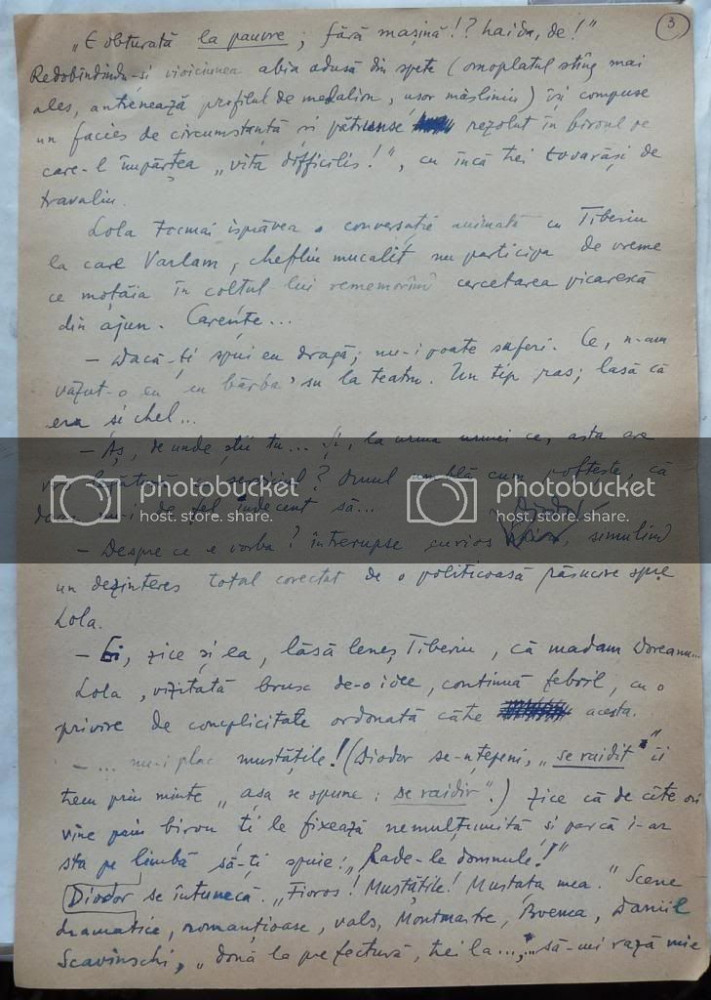 3
„E obturată la pauvre; fără mașină!? haida, de!"
Redobîndindu-și vioiciunea abia adusă din spete (omoplatul stîng mai
ales, antrenează profilul de medalion, ușor măsliniu) își compuse
un facies de circumstanță și pătrunse rezolut în biroul pe
care-l împărțea „vita difficilis!", cu încă trei tovarăși de
travaliu.
Lola tocmai isprăvea o conversație animată cu Tiberiu
la care Varlam, chefliu mucalit nu participa de vreme
ce moțăia în colțul lui rememorînd cercetarea picarescă
din ajun. Carențe...
— Dacă-ți spui eu dragă; nu-i poate suferi. Ce, n-am
văzut-o eu cu bărba-su la teatru. Un tip ras; lasă că
era și chel...
— Aș, de unde știi tu... la urma urmei ce, asta are
serviciul? Omul umblă cum poftește, că
nu-i de fel indecent să...
— Despre ce e vorba? întrerupse curios Diodor, simulînd
un dezinteres total corectat de o politicoasă răsucire spre
Lola.
— Ei, zice și ea, lăsă leneș Tiberiu, că madam Doreanu...
Lola, vizitată brusc de-o idee, continuă febril, cu o
privire de complicitate ordonată către acesta.
— ... nu-i plac mustățile! (Diodor se-nțepeni, „se raidit" îi
trecu prin minte „așa se spune: se raidir".) zice că de cîte ori
vine prin birou ți le fixează nemulțumită și parcă i-ar
sta pe limbă să-ți spuie: „Rade-le domnule!"
Diodor se întunecă. „Fioros! Mustățile! Mustața mea." Scene
dramatice, romanțioase, vals, Montmartre, Boema, Daniil
Scavinschi, „două la prefectură, trei la...", „să-mi rază mie
photobucket
host. store. share.
photobucket
host. store. share.